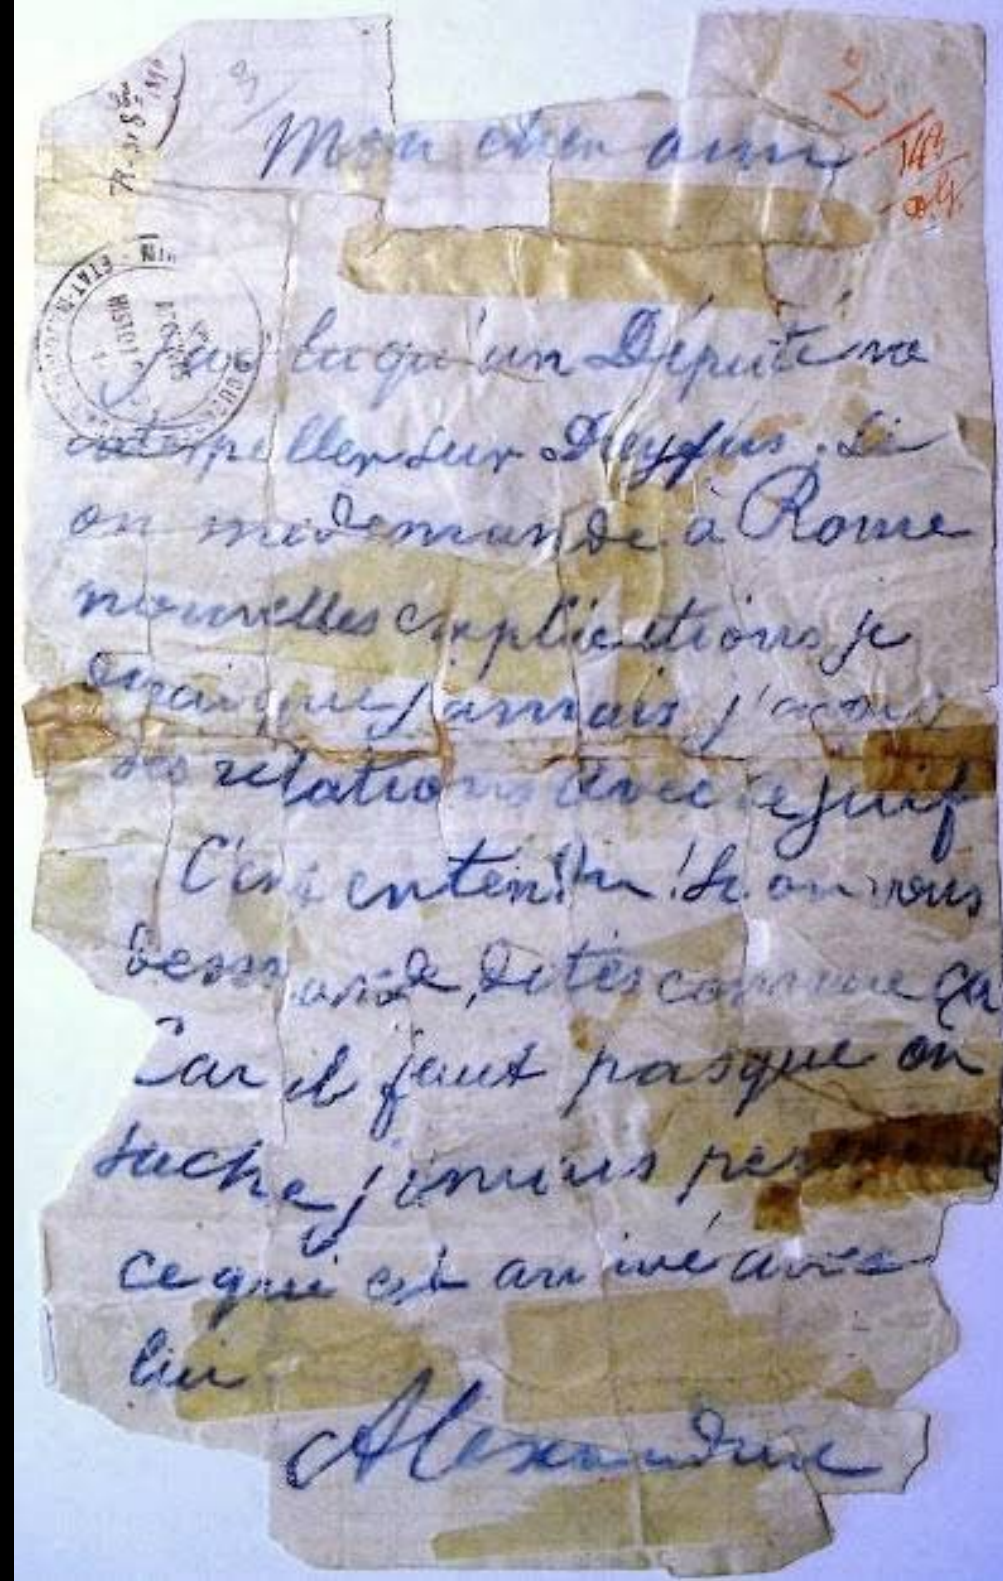 Mon cher ami
J'ai lu qu'un Député va
interpeller sur Dreyfus. Si
on me demande à Rome
nouvelles explications je
dirai que jamais j'avais
des relations avec ce juif
C'est entendu! Si on vous
demande, dites comme ça
Car il faut pas que on
sache jamais personne
ce qui est arrivé avec
lui
Alexandrine